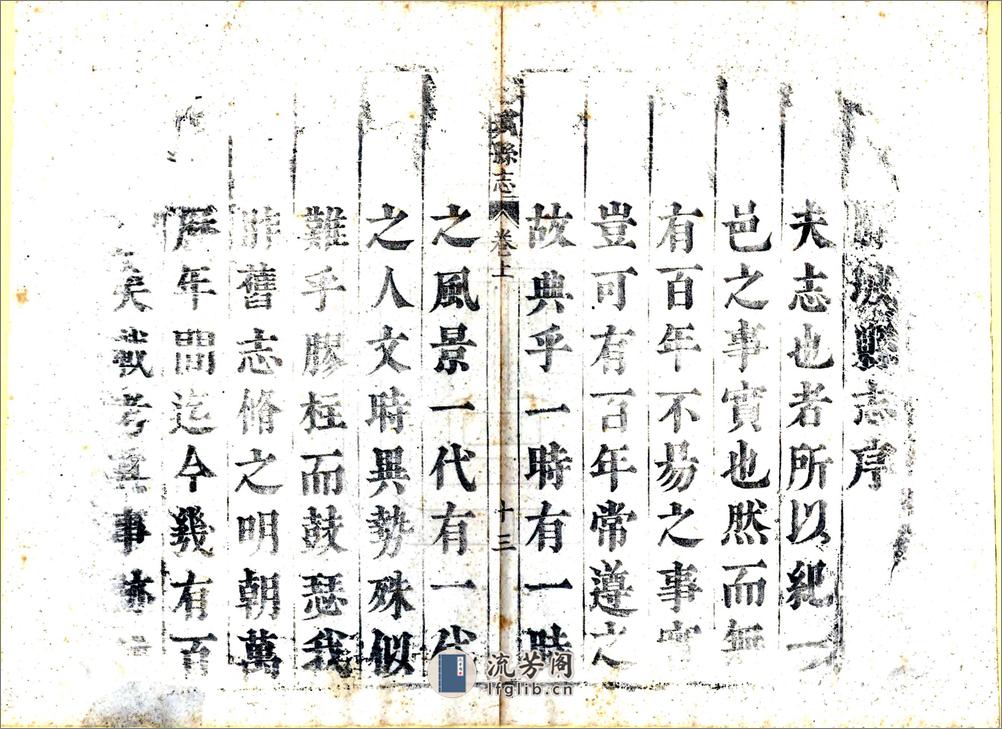 縣志序
夫志也者所以紀一
邑之事實也然而無
有百年不易之事實
豈可有百年常遵之
故典乎一時有一時
縣志 卷上 十三
之風景一代有一代
之人文時異勢殊似
難乎膠柱而鼓瑟我
舊志脩之明朝萬
厯年間迄今幾有百
矣載考其事
流芳阁
lfglib.cn